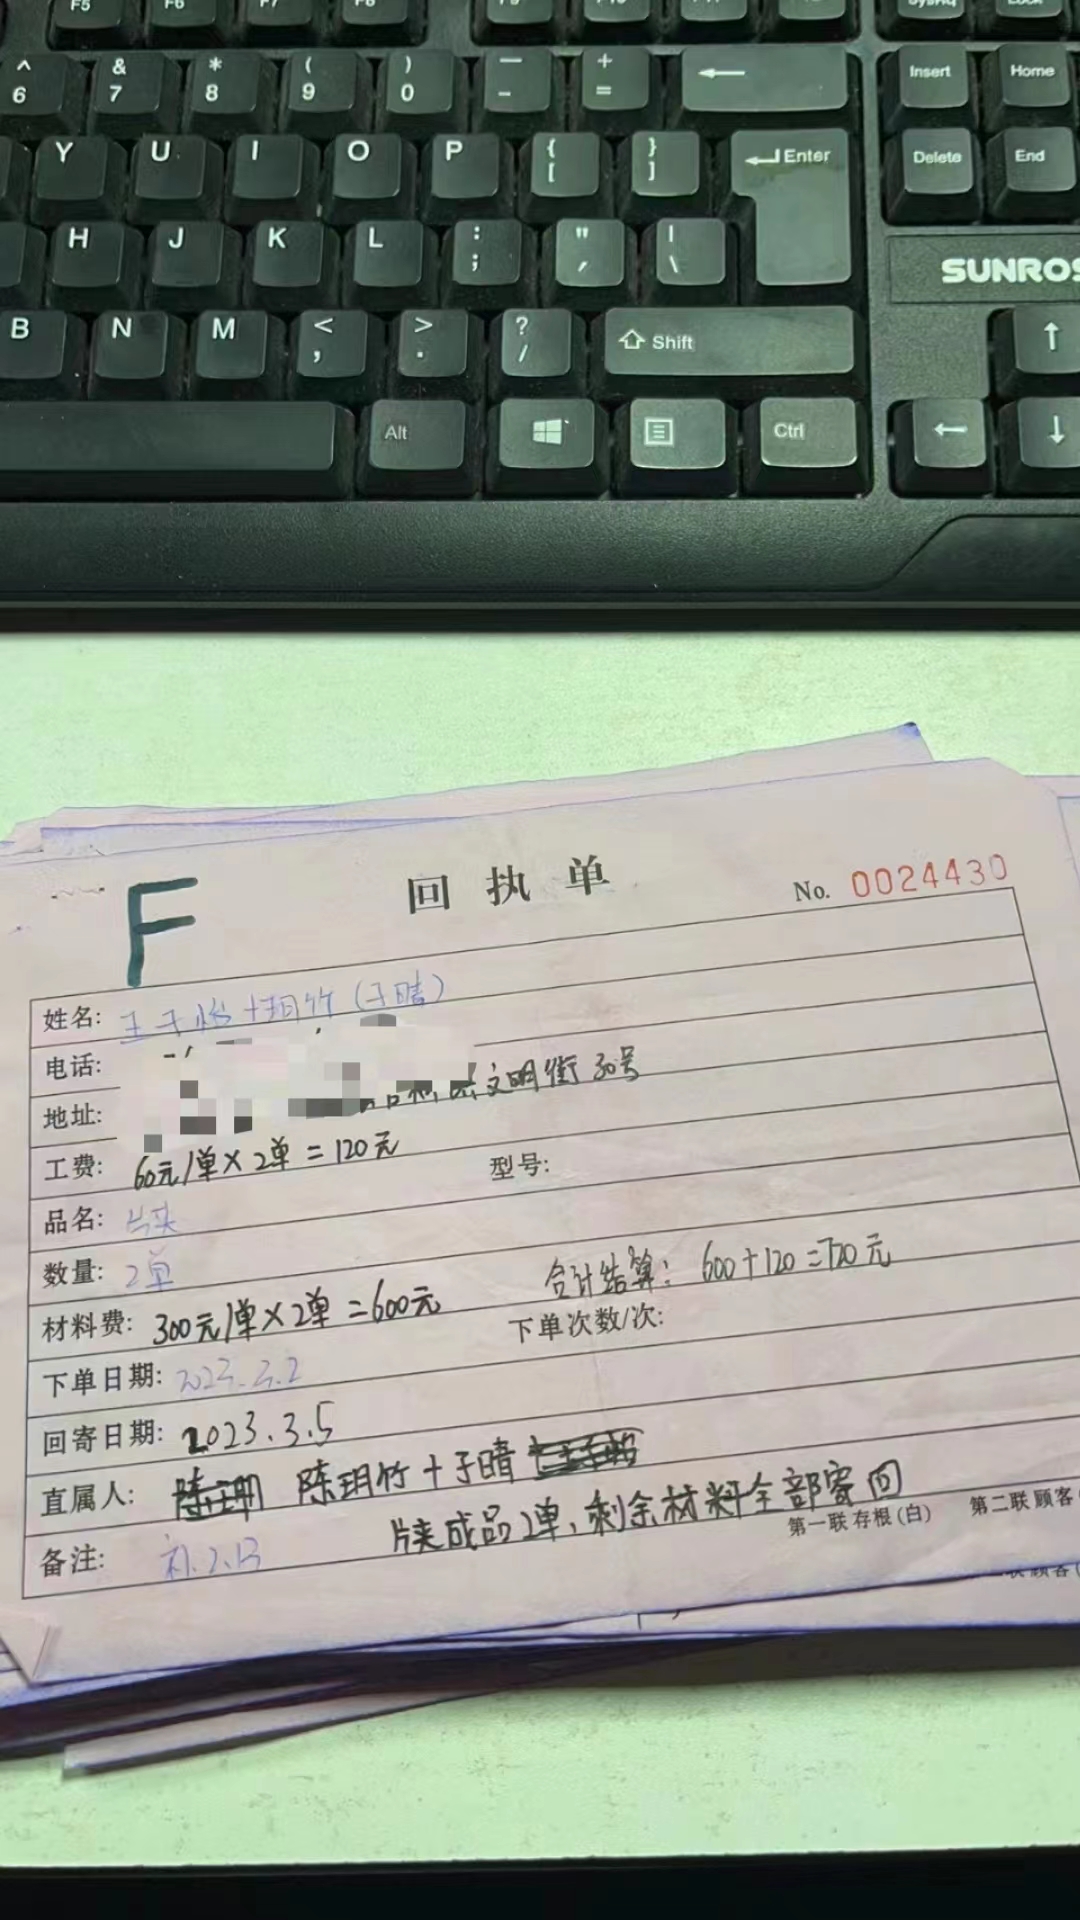 F5 F6 F7 F8 F9 F10 F11 F12 SysRq Lock
^ 6 & 7 * 8 ( 9 ) 0 — - + = Insert Home
Y U I O P { [ } ] Enter Delete End
H J K L : ; " , | \ SUNROS
B N M < , > . ? / Shift
Alt Ctrl
F 回执单 No. 0024430
姓名: 王子怡+玥竹(于晴)
电话:
地址: 文明街30号
工费: 60元/单×2单=120元 型号:
品名: 片夹
数量: 2单 合计结算: 600+120=720元
材料费: 300元/单×2单=600元 下单次数/次:
下单日期: 2023.3.2
回寄日期: 2023.3.5
直属人: 陈玥竹+于晴
备注: 片夹成品2单,剩余材料全部寄回
第一联存根(白) 第二联顾客(
联顾客(